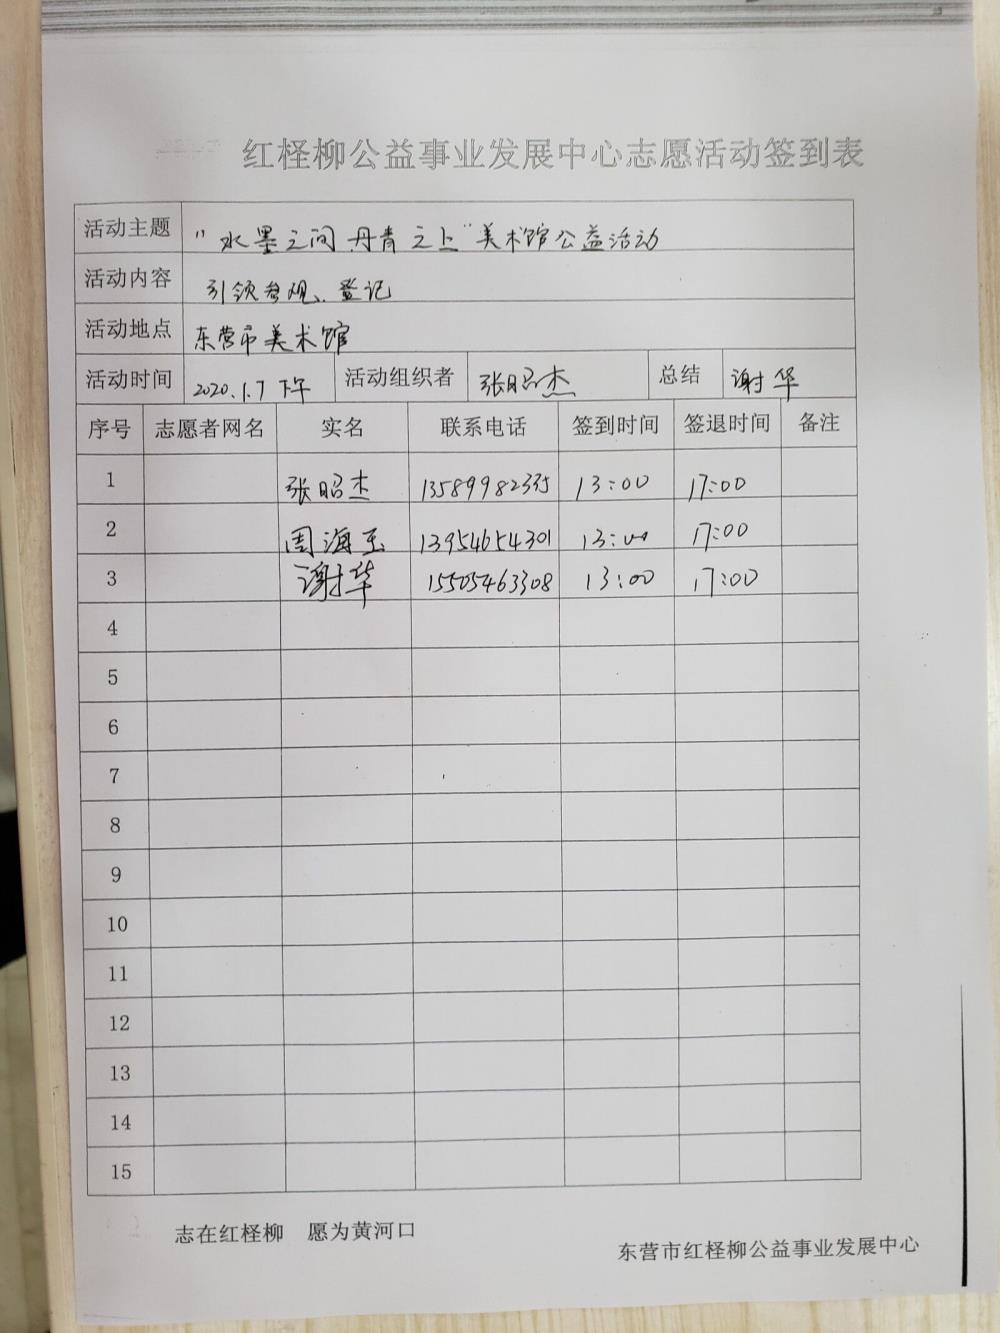 红柽柳公益事业发展中心志愿活动签到表
活动主题 "水墨之间 丹青之上"美术馆公益活动
活动内容 引领参观、登记
活动地点 东营市美术馆
活动时间 2020.1.7下午 活动组织者 张昭杰 总结 谢华
序号 志愿者网名 实名 联系电话 签到时间 签退时间 备注
1 张昭杰 13589982335 13:00 17:00
2 周海玉 13954654301 13:00 17:00
3 谢华 15505463308 13:00 17:00
4
5
6
7
8
9
10
11
12
13
14
15
志在红柽柳 愿为黄河口
东营市红柽柳公益事业发展中心